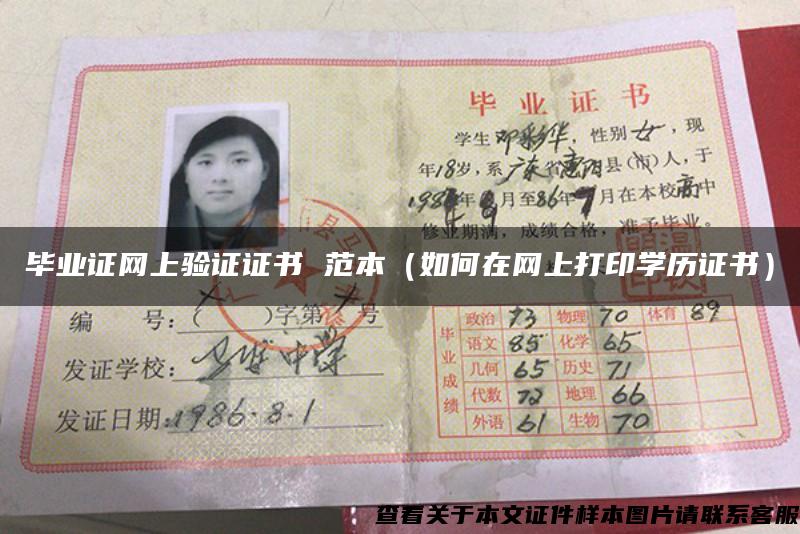 毕业证书
学生邓彩华,性别女,现
年18岁,系广东省惠阳县(市)人,于
月至86年7月在本校高中
修业期满,成绩合格,准予毕业。
毕业证网上验证证书 范本(如何在网上打印学历证书)
编 号:( )字第 号
发证学校: 中学
发证日期:1986.8.1
毕业成绩
政治 73 物理 70 体育 89
语文 85 化学 65
几何 65 历史 71
代数 72 地理 66
外语 61 生物 70
查看关于本文证件样本图片请联系客服